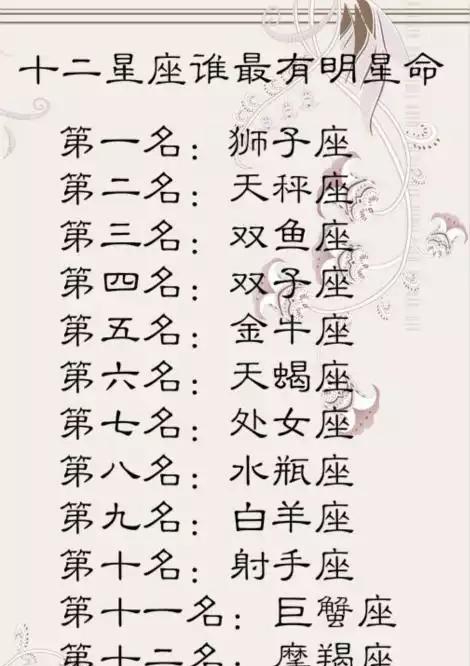 十二星座谁最有明星命
第一名：狮子座
第二名：天秤座
第三名：双鱼座
第四名：双子座
第五名：金牛座
第六名：天蝎座
第七名：处女座
第八名：水瓶座
第九名：白羊座
第十名：射手座
第十一名：巨蟹座
第十二名：摩羯座